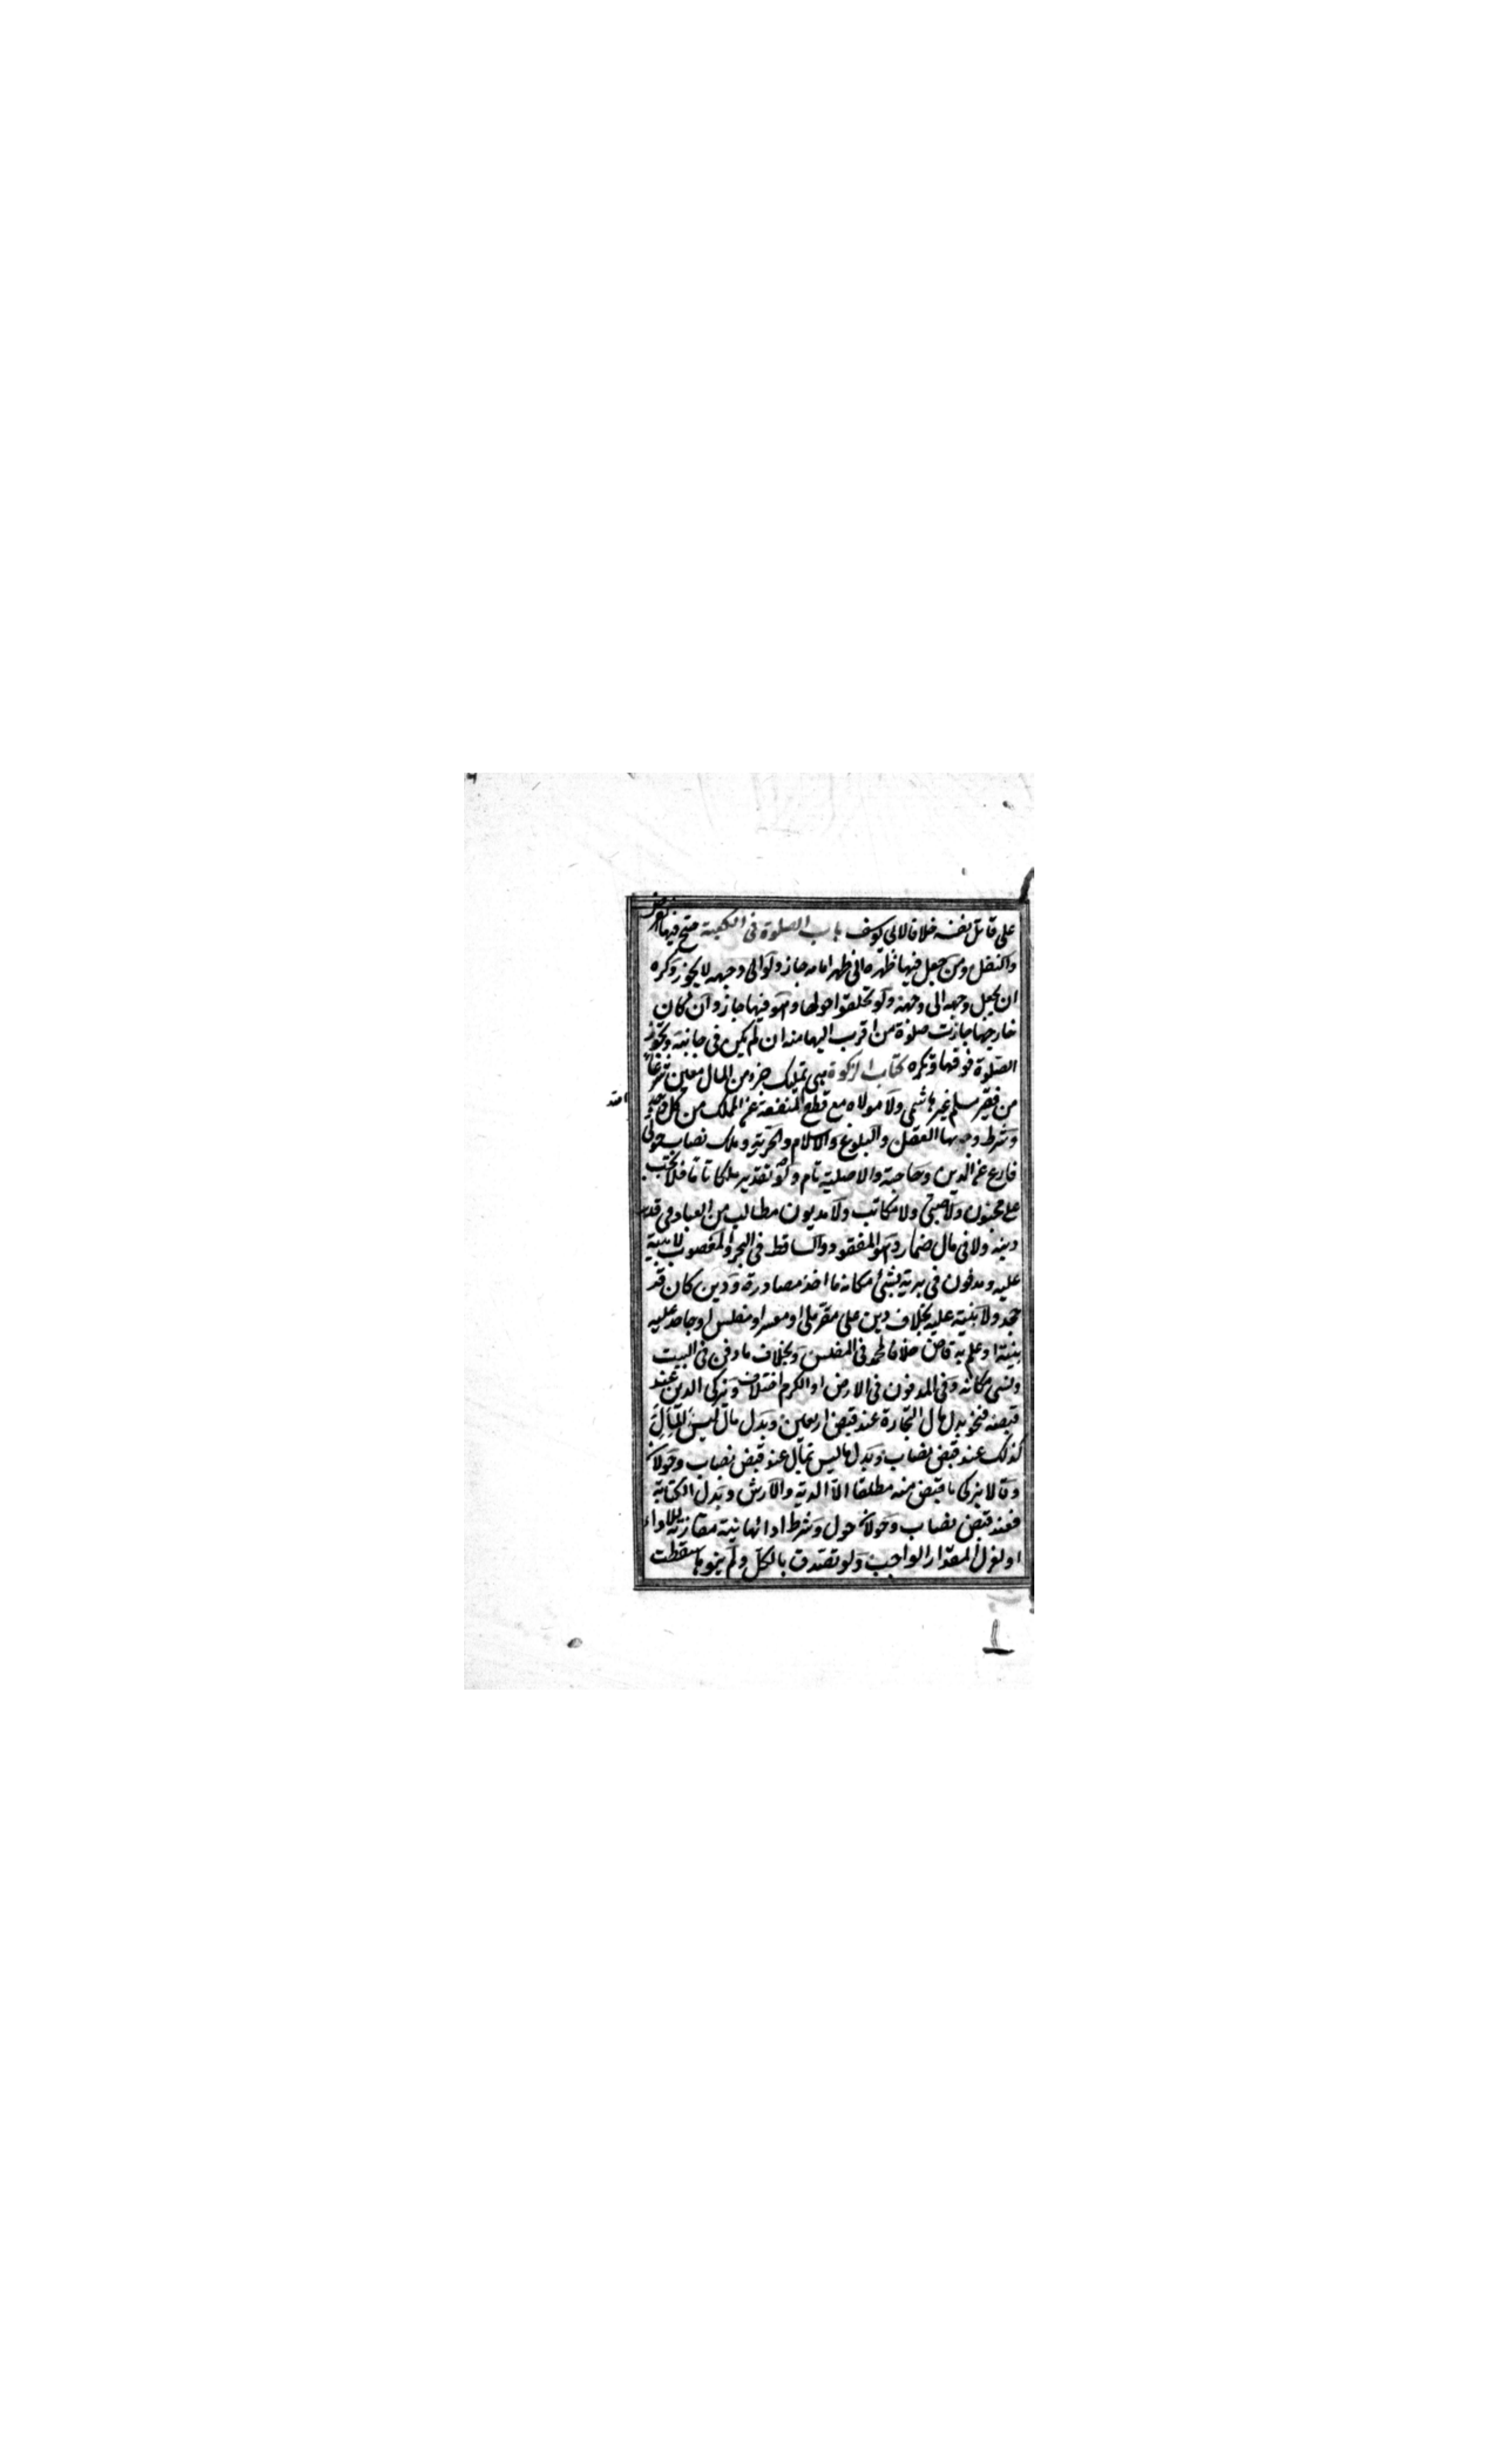 على قاتل نفسه خلافا لابى يوسف باب الصلوة فى الكعبة صح فيها الفرض
والنفل ومن جعل فيها ظهره الى ظهر امامه جاز ولو الى وجهه لا يجوز وكره
ان يجعل وجهه الى وجهه ولو تحلقوا حولها وهو فيها جاز وان كان
خارجها جازت صلوة من اقرب اليها منه ان لم يكن فى جانبه وتجوز
الصلوة فوقها وتكره كتاب الزكوة هى تمليك جزء من المال معين شرعا
من فقير مسلم غير هاشمى ولا مولاه مع قطع المنفعة عن الملك من كل وجه
وشرط وجوبها العقل والبلوغ والاسلام والحرية وملك نصاب حولى
فارغ عن الدين وحاجته والاصلية نام ولو تقديرا ملكا تاما فلا تجب
على مجنون ولا صبى ولا مكاتب ولا مديون مطالب من العباد فى قدر
دينه ولا فى مال ضمار وهو المفقود والساقط فى البحر والمغصوب لا بينة
عليه ومدفون فى برية نسى مكانه ما اخذ مصادرة ودين كان قد
جحد ولا بينة عليه بخلاف دين على مقر ملى او معسر او مفلس او جاحد عليه
بينة او علم به قاض خلافا لمحمد فى المفلس وبخلاف ما دفن فى البيت
ونسى مكانه وفى المدفون فى الارض او الكرم اختلاف ويزكى الدين عند
قبضه فنحو بدل مال التجارة عند قبض اربعين وبدل مال ليس للمال
كذلك عند قبض نصاب وبدل ما ليس بمال عند قبض نصاب وحولان
وقالا يزكى ما قبض منه مطلقا الا الدية والارش وبدل الكتابة
فعند قبض نصاب وحولان حول وشرط ادائها نية مقارنة للاداء
او لعزل المقدار الواجب ولو تصدق بالكل ولم ينوها سقطت